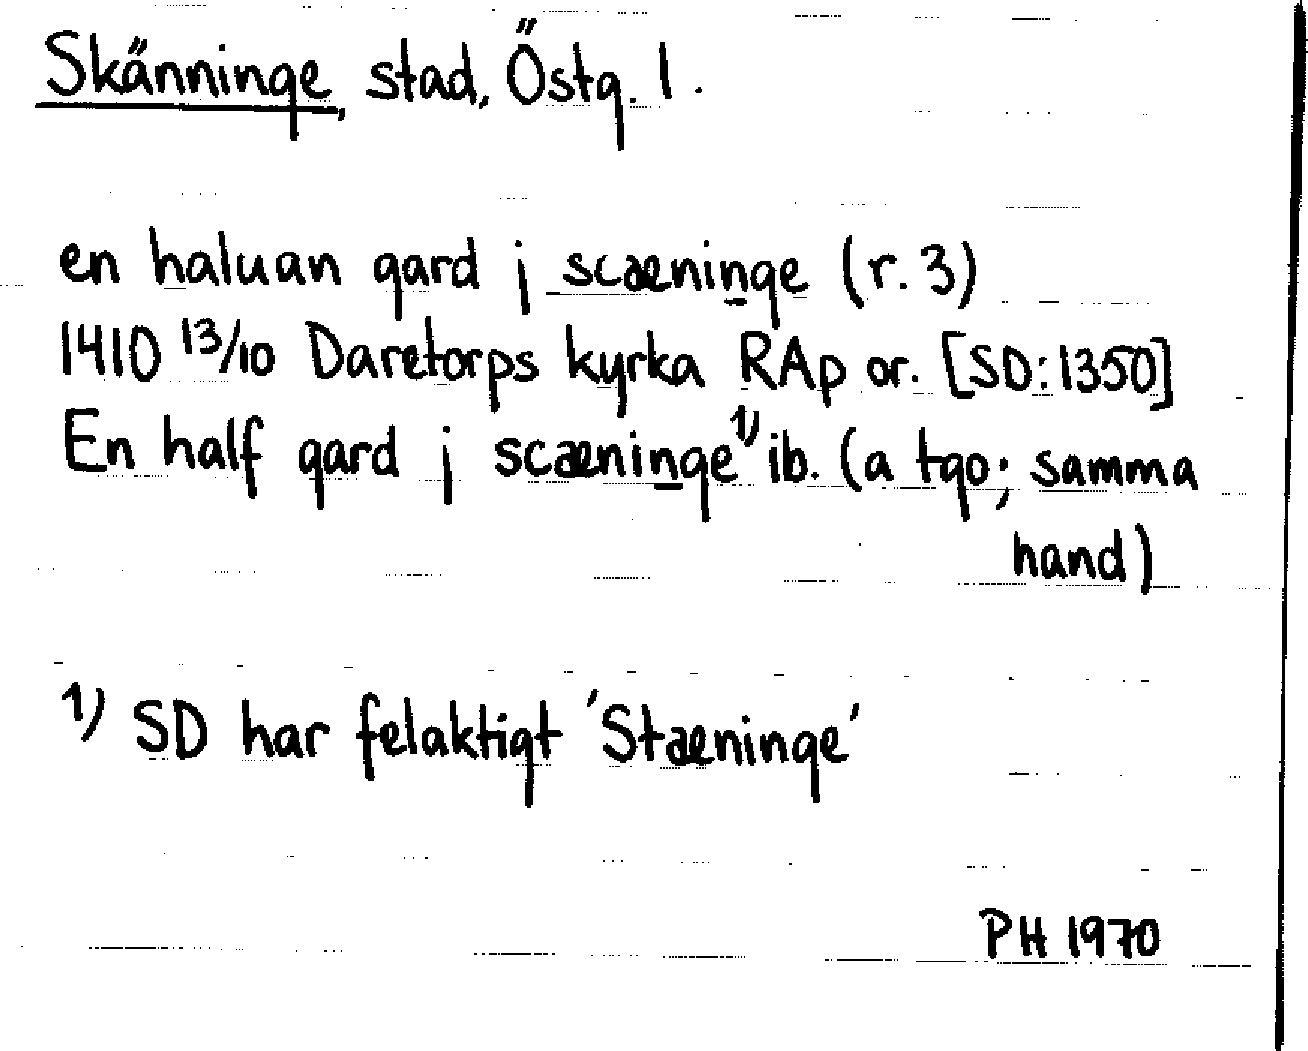 Skänninge, stad, Östg. l.
en haluan gard j scæninge (r. 3)
1410 13/10 Daretorps kyrka RAp or. [SD:1350]
En half gard j scæninge 1) ib. (a tgo; samma
hand)
1) SD har felaktigt 'Stæninge'
PH 1970